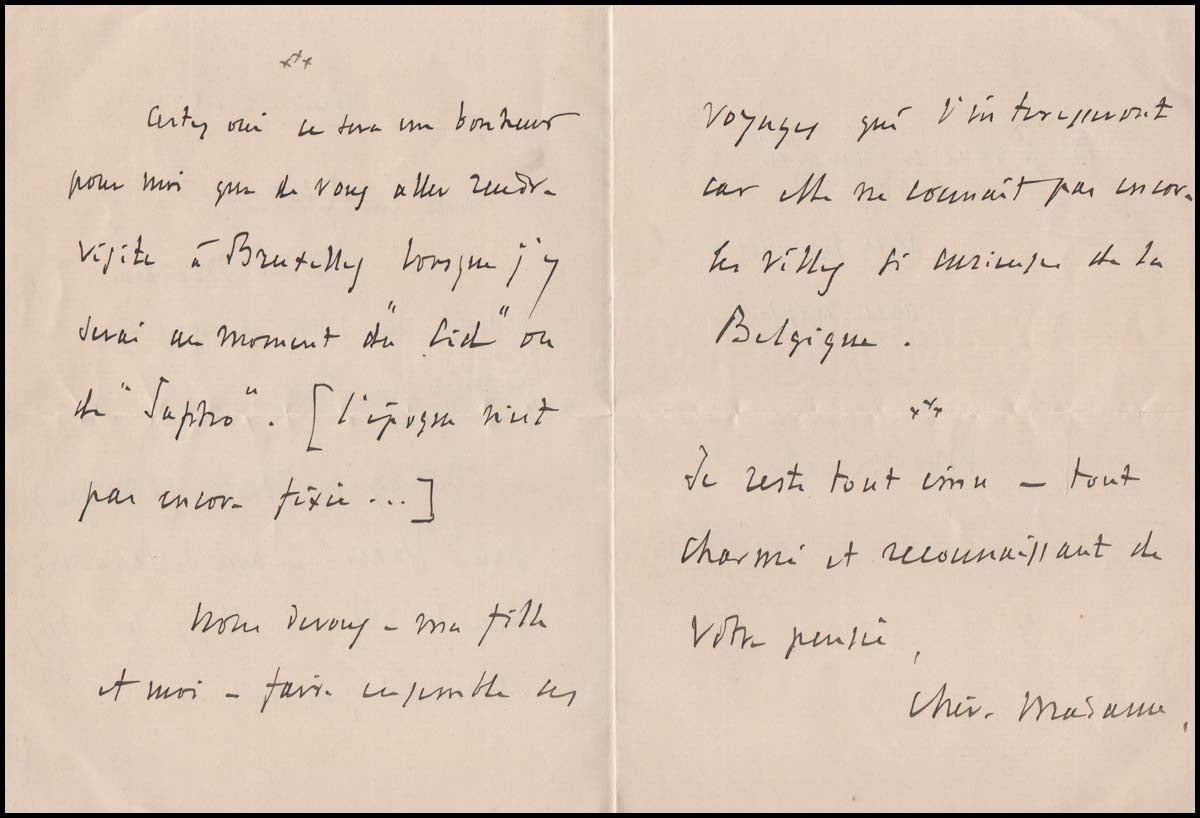 Certes oui ce sera un bonheur
pour moi que de vous aller rendre
visite à Bruxelles lorsque j'y
serai au moment du "Cid" ou
de "Sapho". [l'époque n'est
pas encore fixée...]
Nous devons – ma fille
et moi – faire ensemble ces
voyages qui l'intéresseront
car elle ne connaît pas encore
les villes si curieuses de la
Belgique.
Je reste tout ému – tout
charmé et reconnaissant de
votre pensée,
chère Madame,